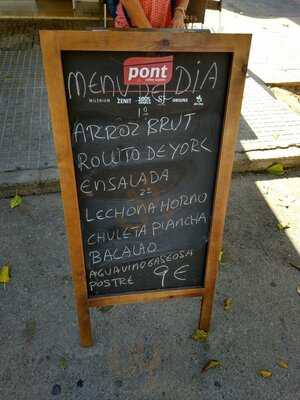 pont
MENU DEL DIA
ZENIT
1º
ARROZ BRUT
ROLLITO DE YORK
ENSALADA
2º
LECHONA HORNO
CHULETA PLANCHA
BACALAO
AGUA VINO GASEOSA
POSTRE 9 €